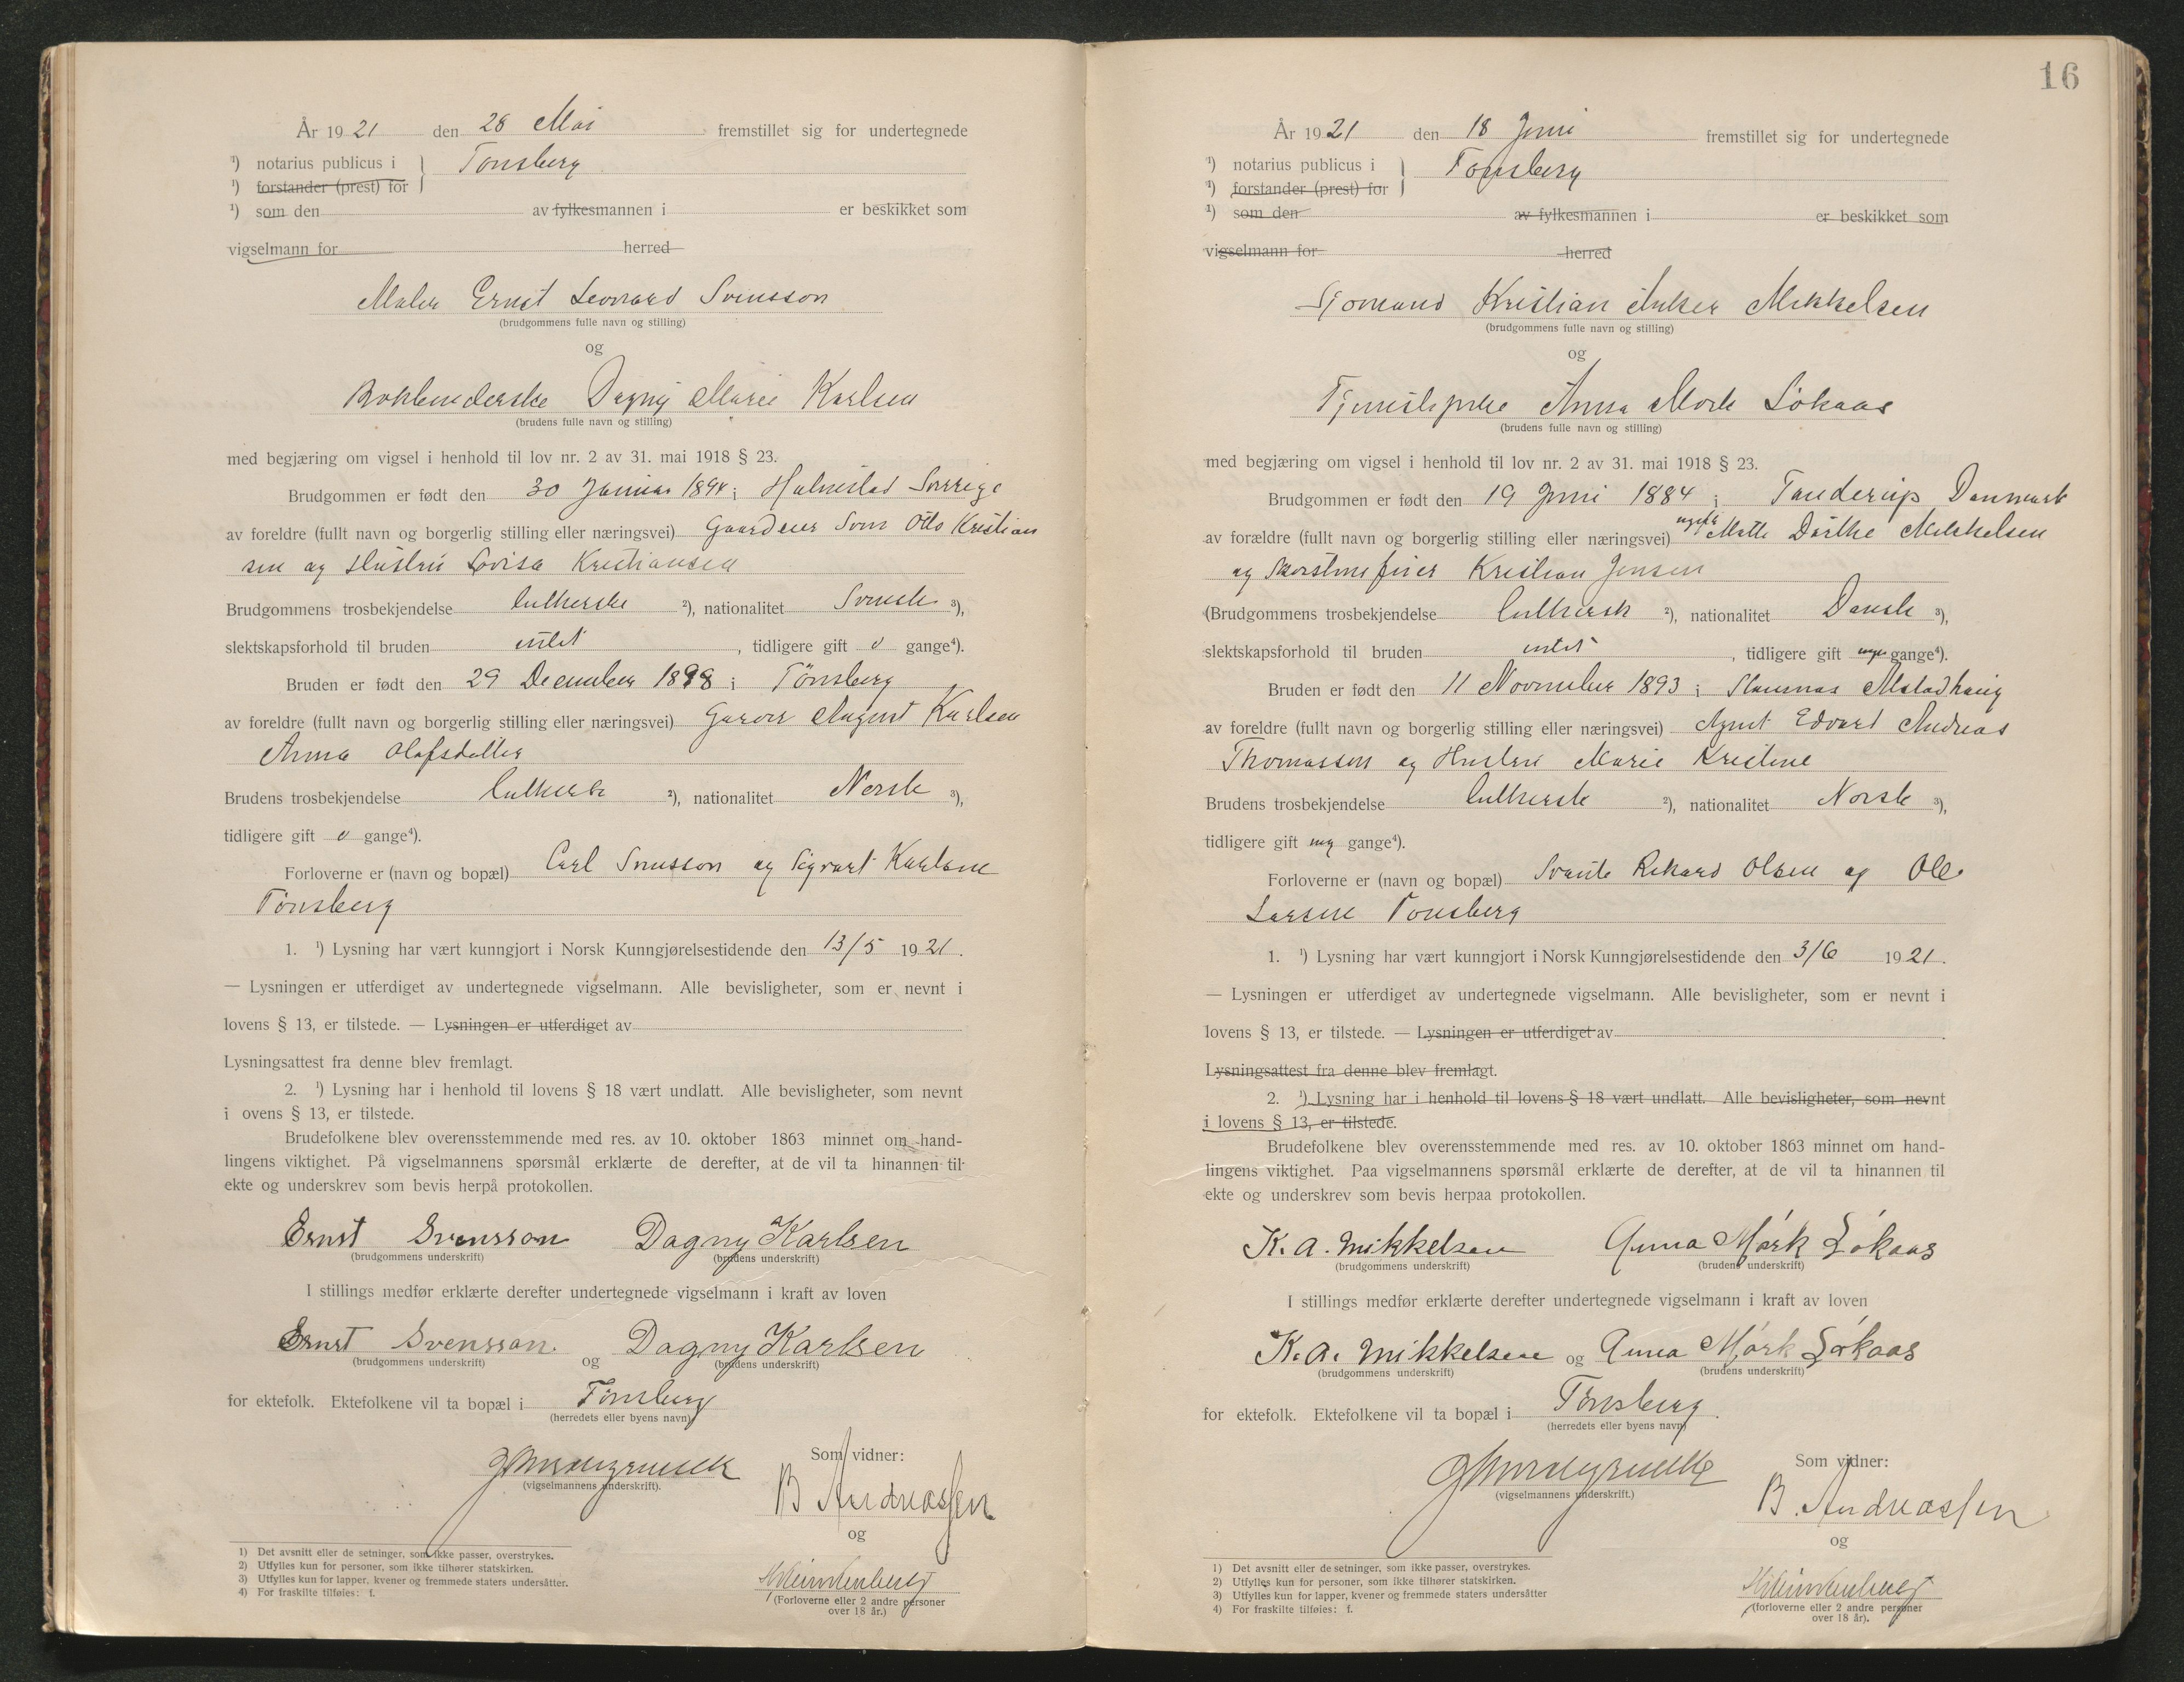 År 1921 den 28 Mai fremstillet sig for undertegnede
¹) notarius publicus i } Tønsberg
¹) forstander (prest) for
¹) som den av fylkesmannen i er beskikket som
vigselmann for herred
Maler Ernst Leonard Svensson
(brudgommens fulle navn og stilling)
og
Bokbinderske Dagny Marie Karlsen
(brudens fulle navn og stilling)
med begjæring om vigsel i henhold til lov nr. 2 av 31. mai 1918 § 23.
Brudgommen er født den 30 Januar 1894 i Halmstad Sverige
av foreldre (fullt navn og borgerlig stilling eller næringsvei) Gaardeier Sven Otto Kristian
sen og Hustru Lovisa Kristiansen
Brudgommens trosbekjendelse lutherske ²), nationalitet Svensk ³),
slektskapsforhold til bruden intet , tidligere gift 0 gange⁴).
Bruden er født den 29 December 1898 i Tönsberg
av foreldre (fullt navn og borgerlig stilling eller næringsvei) Garver August Karlsen
Anna Olafsdatter
Brudens trosbekjendelse lutherske ²), nationalitet Norsk ³),
tidligere gift 0 gange⁴).
Forloverne er (navn og bopæl) Carl Svensson og Sigvart Karlsen
Tønsberg
1. ¹) Lysning har vært kunngjort i Norsk Kunngjørelsestidende den 13/5 1921.
— Lysningen er utferdiget av undertegnede vigselmann. Alle bevisligheter, som er nevnt i
lovens § 13, er tilstede. — Lysningen er utferdiget av
Lysningsattest fra denne blev fremlagt.
2. ¹) Lysning har i henhold til lovens § 18 vært undlatt. Alle bevisligheter, som nevnt
i ovens § 13, er tilstede.
Brudefolkene blev overensstemmende med res. av 10. oktober 1863 minnet om hand-
lingens viktighet. På vigselmannens spørsmål erklærte de derefter, at de vil ta hinannen til
ekte og underskrev som bevis herpå protokollen.
Ernst Svensson Dagny Karlsen
(brudgommens underskrift) (brudens underskrift)
I stillings medfør erklærte derefter undertegnede vigselmann i kraft av loven
Ernst Svensson og Dagny Karlsen
(brudgommens underskrift) (brudens underskrift)
for ektefolk. Ektefolkene vil ta bopæl i Tønsberg
(herredets eller byens navn)
Som vidner:
(vigselmannens underskrift).
B Andreassen
og
(Forloverne eller 2 andre personer
over 18 år.)
1) Det avsnitt eller de setninger, som ikke passer, overstrykes.
2) Utfylles kun for personer, som ikke tilhører statskirken.
3) Utfylles kun for lapper, kvener og fremmede staters undersåtter.
4) For fraskilte tilføies: f.
16
År 1921 den 18 Juni fremstillet sig for undertegnede
¹) notarius publicus i } Tønsberg
¹) forstander (prest) for
¹) som den av fylkesmannen i er beskikket som
vigselmann for herred
Sjømand Kristian Anker Mikkelsen
(brudgommens fulle navn og stilling)
og
Tjenestepike Anna Mørk Løkaas
(brudens fulle navn og stilling)
med begjæring om vigsel i henhold til lov nr. 2 av 31. mai 1918 § 23.
Brudgommen er født den 19 Juni 1884 i Tanderup Danmark
av forældre (fullt navn og borgerlig stilling eller næringsvei) ugifte Mette Dorthe Mikkelsen
og Skorstensfeier Kristian Jensen
(Brudgommens trosbekjendelse luthersk ²), nationalitet Dansk ³),
slektskapsforhold til bruden intet , tidligere gift ingen gange⁴).
Bruden er født den 11 November 1893 i Alstadhaug
av foreldre (fullt navn og borgerlig stilling eller næringsvei) Agent Edvard Andreas
Thomassen og Hustru Marie Kristine
Brudens trosbekjendelse lutherske ²), nationalitet Norsk ³),
tidligere gift ing gange⁴).
Forloverne er (navn og bopæl) Svante Rikard Olsen og Ole
Larsen Tønsberg
1. ¹) Lysning har vært kunngjort i Norsk Kunngjørelsestidende den 3/6 1921.
— Lysningen er utferdiget av undertegnede vigselmann. Alle bevisligheter, som er nevnt i
lovens § 13, er tilstede. — Lysningen er utferdiget av
Lysningsattest fra denne blev fremlagt.
2. ¹) Lysning har i henhold til lovens § 18 vært undlatt. Alle bevisligheter, som nevnt
i lovens § 13, er tilstede.
Brudefolkene blev overensstemmende med res. av 10. oktober 1863 minnet om hand-
lingens viktighet. Paa vigselmannens spørsmål erklærte de derefter, at de vil ta hinannen til
ekte og underskrev som bevis herpaa protokollen.
K. A. Mikkelsen Anna Mörk Lökaas
(brudgommens underskrift) (brudens underskrift)
I stillings medfør erklærte derefter undertegnede vigselmann i kraft av loven
K. A. Mikkelsen og Anna Mörk Lökaas
(brudgommens underskrift) (brudens underskrift)
for ektefolk. Ektefolkene vil ta bopæl i Tønsberg.
(herredets eller byens navn)
Som vidner:
(vigselmannens underskrift.)
B. Andreassen
og
(forloverne eller 2 andre personer
over 18 år).
1) Det avsnitt eller de setninger, som ikke passer, overstrykes.
2) Utfylles kun for personer, som ikke tilhører statskirken.
3) Utfylles kun for lapper, kvener og fremmede staters undersåtter
4) For fraskilte tilføies: f.